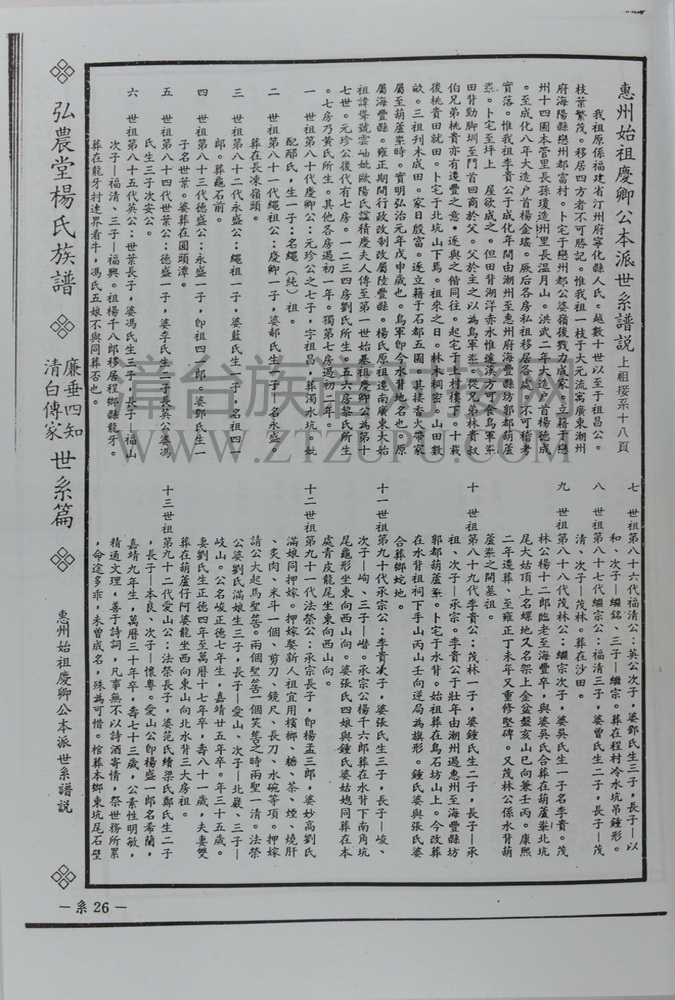 惠州始祖慶卿公本派世系譜說 上祖接系十八頁
我祖原係福建省汀州府寧化縣人氏。越數十世以至于祖昌公。
枝葉繁茂。移居四方者不可勝記。惟我祖一枝于大元流寓廣東潮州
府海陽縣戀州都富村。卜宅于戀州都公婆嶺後戮力成家。立籍于戀
州十四圖本管里長孫瓊造州里長溫月山。洪武二年大造戶首楊德成
。至成化八年大造戶首楊金瑤。厥后各房私祖移居各處。不可稽考
實落。惟我祖李貴公于成化年間由潮州至惠州府海豐縣坊郭都葫蘆
。卜宅于坪上。屋欲成之。但田背湖洋赤水惟遠漢方可食鳥軍系
田背勤腳圳至門首回商於父。父於主之以為鳥軍系。從兄弟林貴叔
伯兄弟桃貴亦有連豐之意。遂與之偕同往。起宅于上村樓下。十載
後桃貴回就田。卜宅于北坑山下焉。祖來之日。林木稠密。山田數
畝。三祖刋木成田。家日殷富。遂立籍于石都五圖。其接香火帶家
屬至葫蘆峯時。實明弘治元年戊申歲也。鳥軍即今水背地名也。原
屬海豐縣。雍正期間行政改制改屬陸豐縣。楊氏原祖遠南廣大南始
祖諱聲號雲岫妣歐陽氏誼積慶夫人傳至第一世始基祖慶卿公為第十
七世。元珍公後代有七房。一二三四房劉氏所生。五六房黎氏所生
。七房乃黃氏所生。其他各房過初一年。獨第七房過初二年。
一 世祖第八十代慶卿公：元珍公之七子，字祖昌，葬濁水坑。妣
配鄢氏，生一子：名繩（純）祖。
二 世祖第八十一代繩祖公：慶卿一子，婆郝氏生一子，名永盛。
葬在長湶嶺頭。
三 世祖第八十二代永盛公：繩祖一子，婆藍氏生一子，名祖四一
郎。葬龜石前。
四 世祖第八十三代德盛公：永盛一子，即祖四一郎。婆鄧氏生一
子名世葉。婆葬在圓頭潭。
五 世祖第八十四代世葉公：德盛一子，婆李氏生一子長英公婆馮
氏生三子次安公。
六 世祖第八十五代英公：世葉長子，婆馮氏生三子，長子—福山
次子—福清，三子—福興。祖楊千八郎移居程鄉縣龍牙。
葬在龍牙村逹界看牛，馮氏五娘不與同葬否也。
七 世祖第八十六代福清公：英公次子，婆鄧氏生三子，長子—以
和、次子—繼銘、三子—繼宗。葬在程村冷水坑吊鍾形。
八 世祖第八十七代繼宗公：福清三子，婆曾氏生二子，長子—茂
清、次子—茂林。葬在沙田。
九 世祖第八十八代茂林公：繼宗次子，婆吳氏生一子名李貴。茂
林公楊十二郎臨老至海豐卒。與婆吳氏合葬在葫蘆峯北坑
尾大姑頂上名螺地又名架上金盆盤亥山巳向兼壬丙。康熙
二年遷葬、至雍正丁未年又重修堅碑。又茂林公係水背葫
蘆峯之開基祖。
十 世祖第八十九代李貴公：茂林一子，婆鍾氏生二子，長子—承
祖、次子—承宗。李貴公于壯年由潮州遇惠州至海豐縣坊
郭都葫蘆峯。卜宅于水背。始祖葬在鳥石坊山上。今改葬
在水背祖祠下手山丙山壬向逆局為旗形。鍾氏婆與張氏婆
合葬鄉蛇地。
十一世祖第九十代承宗公：李貴次子，婆張氏生三子，長子—峻、
次子—峋、三子—嶜。承宗公楊千六郎葬在水背下南角坑
尾龜形坐東向西山向。婆張氏四娘與鍾氏婆姑媳同葬在本
處青皮龍尾坐東向西山向。
十二世祖第九十一代法榮公：承宗長子，即楊孟三郎，婆妙高劉氏
滿娘同押嫁。押嫁娶新人祖宜用檳榔、糖、茶、煙、燒肝
、炙肉、米斗一個、剪刀、鏡尺、長刀、水碗等項。押嫁
請公大起馬聖筶。兩個聖筶一個笑筶之時兩聖一清。法榮
公婆劉氏滿娘生三子，長子—愛山、次子—北巖、三子—
岐山。公名峻正德七年生，嘉靖廿五年卒。年三十五歲。
妻劉氏生正德四年至萬曆十七年卒，壽八十一歲，夫妻雙
葬在葫蘆仔阿婆龍坐西向東山向北水背三大房祖。
十三世祖第九十二代愛山公：法榮長子，婆范氏續梁氏鄭氏生二子
，長子—本良、次子—懷粵。愛山公即楊盛一郎名希蘭，
嘉靖九年生，萬曆三十年卒，壽七十三歲，公素性明敏，
精通文理，善于詩詞，凡事無不以詩酒寄情，祭世務所累
，命途多乖，未曾成名，殊為可惜。棺葬本鄉東坑尾石壁
弘農堂楊氏族譜
廉垂四知
清白傳家
世系篇
惠州始祖慶卿公本派世系譜說
—系 26—
章台族譜印刷网
WWW.ZTZUPU.COM